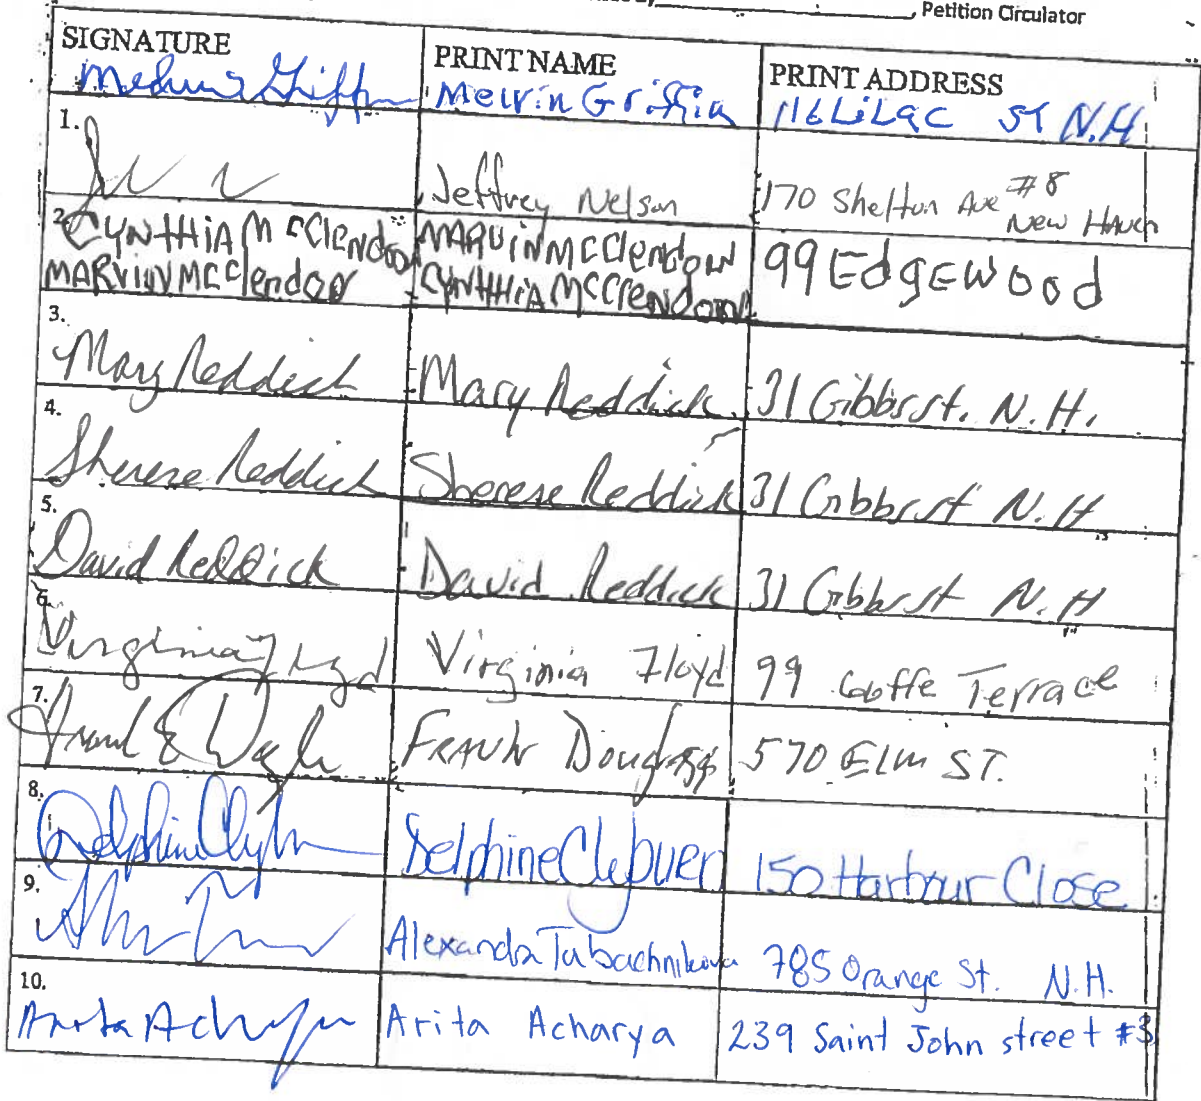 Petition Circulator
SIGNATURE PRINT NAME PRINT ADDRESS
Melvin Griffin Melvin Griffin 116 LiLac St N.H
1. Jeffrey Nelson 170 Shelton Ave #8 New Haven
2. CYNTHIA McClendon MARVIN McClendon 99 EdgEwood
MARVIN McClendon CYNTHIA McClendon
3. Mary Reddick Mary Reddick 31 Gibbs st. N.H.
4. Sherese Reddick Sherese Reddick 31 Gibbs st N.H.
5. David Reddick David Reddick 31 Gibbs st N.H
6. Virginia Floyd Virginia Floyd 99 Goffe Terrace
7. Frank E Douglass FRANK Douglass 570 Elm ST.
8. Delphine Clyburn Delphine Clyburn 150 Harbour Close
9. Alexandra Tabachnikova 785 Orange St. N.H.
10. Arita Acharya Arita Acharya 239 Saint John street #3